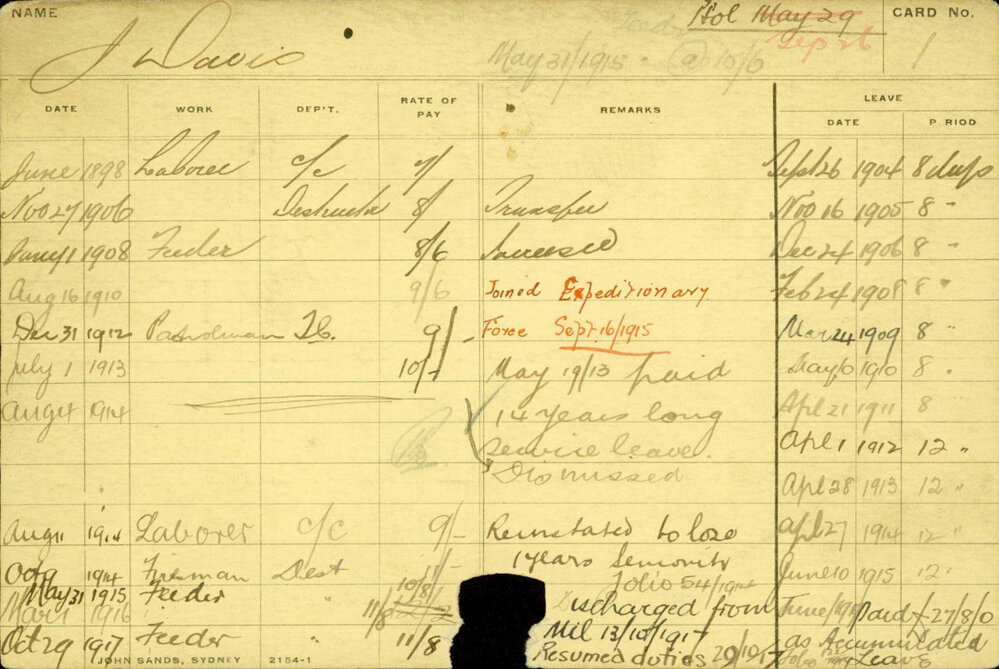 NAME
J Davis
Hol May 29
Sep 26
May 31/1915 @ 10/6
CARD No.
1
DATE WORK DEP'T. RATE OF PAY REMARKS LEAVE
DATE PERIOD
June 1898 Laborer c/c 7/ Sept 26 1904 8 days
Nov 27 1906 Destructor 8/ Transfer Nov 16 1905 8 "
Jany 1 1908 Feeder 8/6 Increased Dec 24 1906 8 "
Aug 16 1910 9/6 Joined Expeditionary Feb 24 1908 8 "
Dec 31 1912 Patrolman Do. 9/- Force Sept. 16/1915 Mar 24 1909 8 "
July 1 1913 10/- May 19/13 paid May 6 1910 8 "
Aug 4 1914 14 years long Apl 21 1911 8 "
service leave. Apl 1 1912 12 "
Dismissed Apl 28 1913 12 "
Aug 11 1914 Laborer c/c 9/- Reinstated to lose Apl 27 1914 12 "
1 years Seniority
Oct 9 1914 Fireman Dest 11/- Folio 54/1914 June 10 1915 12 "
May 31 1915 Feeder " 10/8 Discharged from June/19 paid £27/8/0
Mar 1 1916 11/8 Mil 13/10/1917 as Accumulated
Oct 29 1917 Feeder " 11/8 Resumed duties 29/10/17 Leave
JOHN SANDS, SYDNEY 2154-1